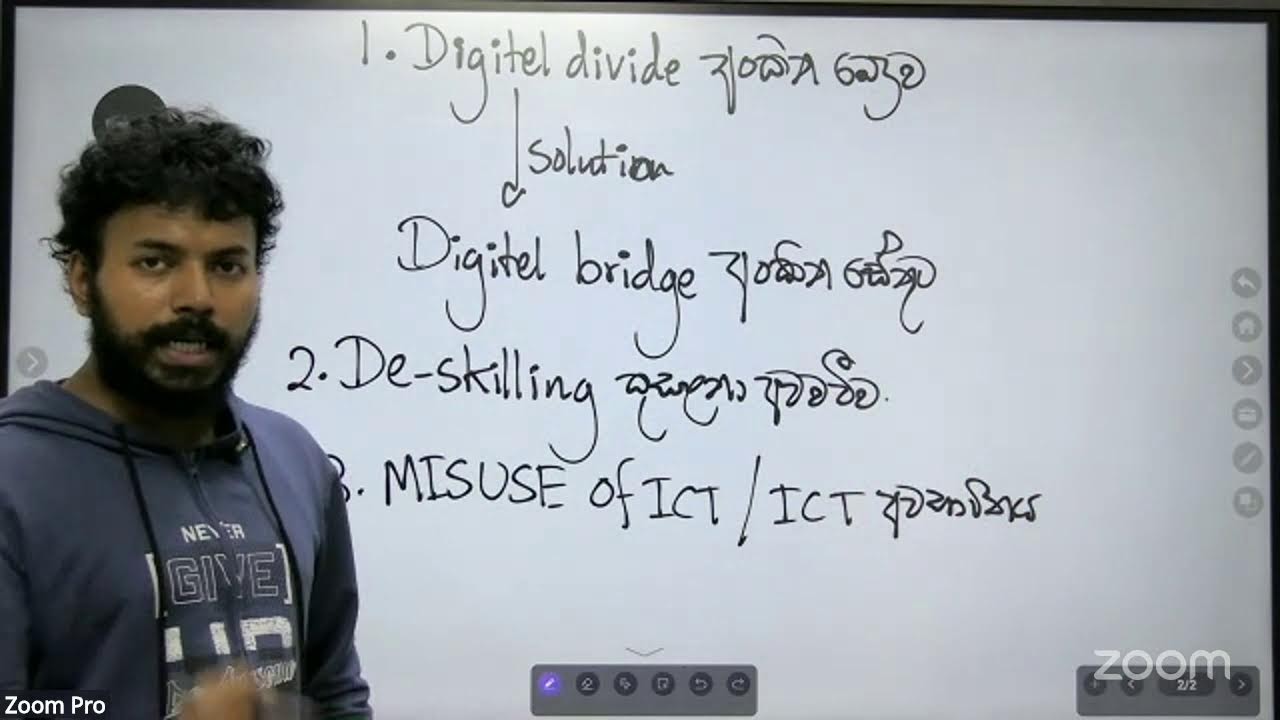 1. Digitel divide අංකිත බෙදුම
Solution
Digitel bridge අංකිත සේතුව
2. De-skilling කුසලතා අවමවීම.
3. MISUSE of ICT / ICT අවභාවිතය
NEVER
GIVE
UP
zoom
2/2
Zoom Pro